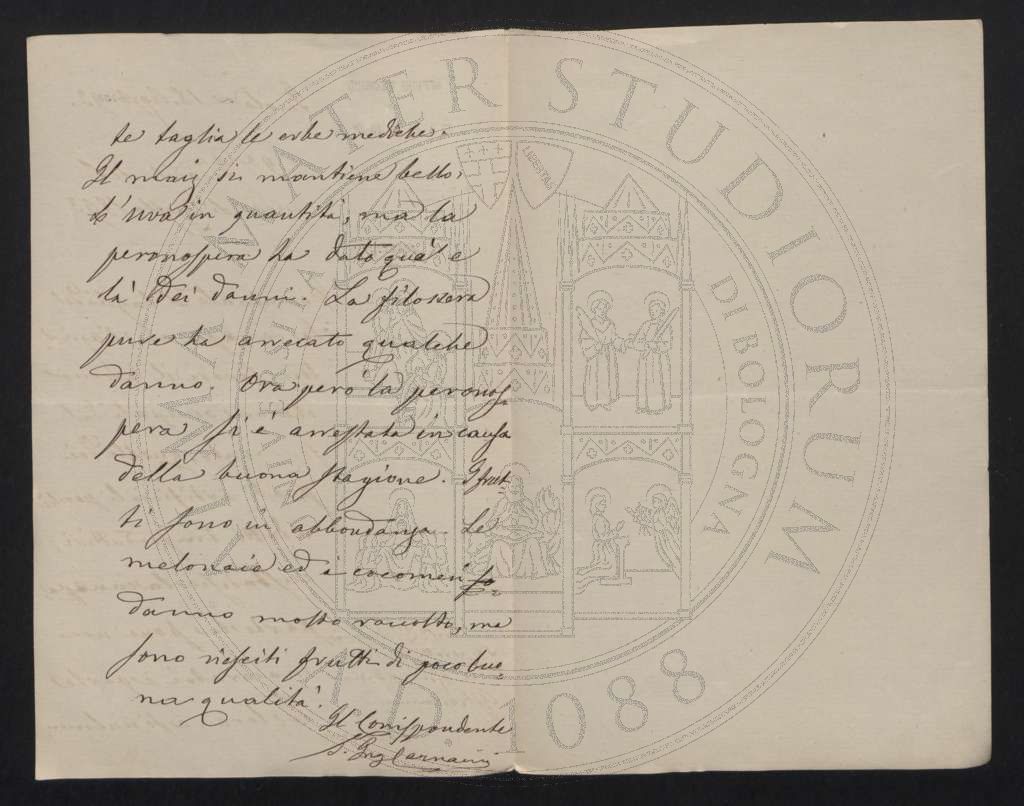 te taglia le erbe mediche.
Il maiz si mantiene bello,
L'uva in quantità, ma la
peronospera ha dato quà e
là dei danni. La filossera
pure ha arrecato qualche
danno. Ora però la peronos-
pera si è arrestata in causa
della buona stagione. I frut-
ti sono in abbondanza. Le
melonaie ed i cocomeri
danno molto raccolto, ma
sono riesciti frutti di poco buo-
na qualità.
Il Corrispondente
ALMA MATER STUDIORUM
UNIVERSITÀ DI BOLOGNA
LIBERTAS
A.D. 1088